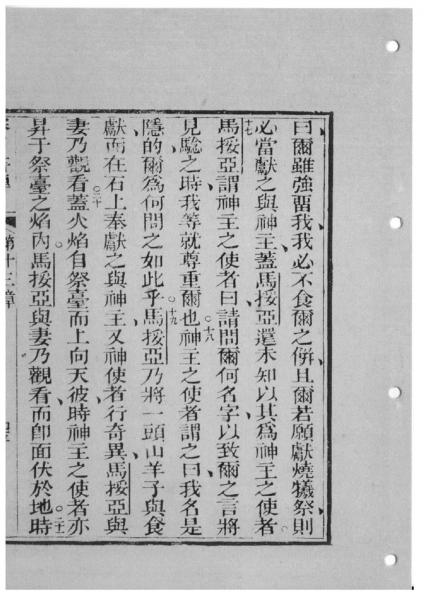 曰爾雖強留我我必不食爾之餅且爾若願獻燒犧祭則
必當獻之與神主蓋馬挼亞還未知以其爲神主之使者
十七馬挼亞謂神主之使者曰請問爾何名字以致爾之言將
見騐之時我等就尊重爾也十八神主之使者謂之曰我名是
隱的爾爲何問之如此乎十九馬挼亞乃將一頭山羊子與食
獻而在石上奉獻之與神主又神使者行奇異馬挼亞與
妻乃觀看二十蓋火焰自祭臺而上向天彼時神主之使者亦
昇于祭臺之焰內馬挼亞與妻乃觀看而卽面伏於地二十一時
第十三章